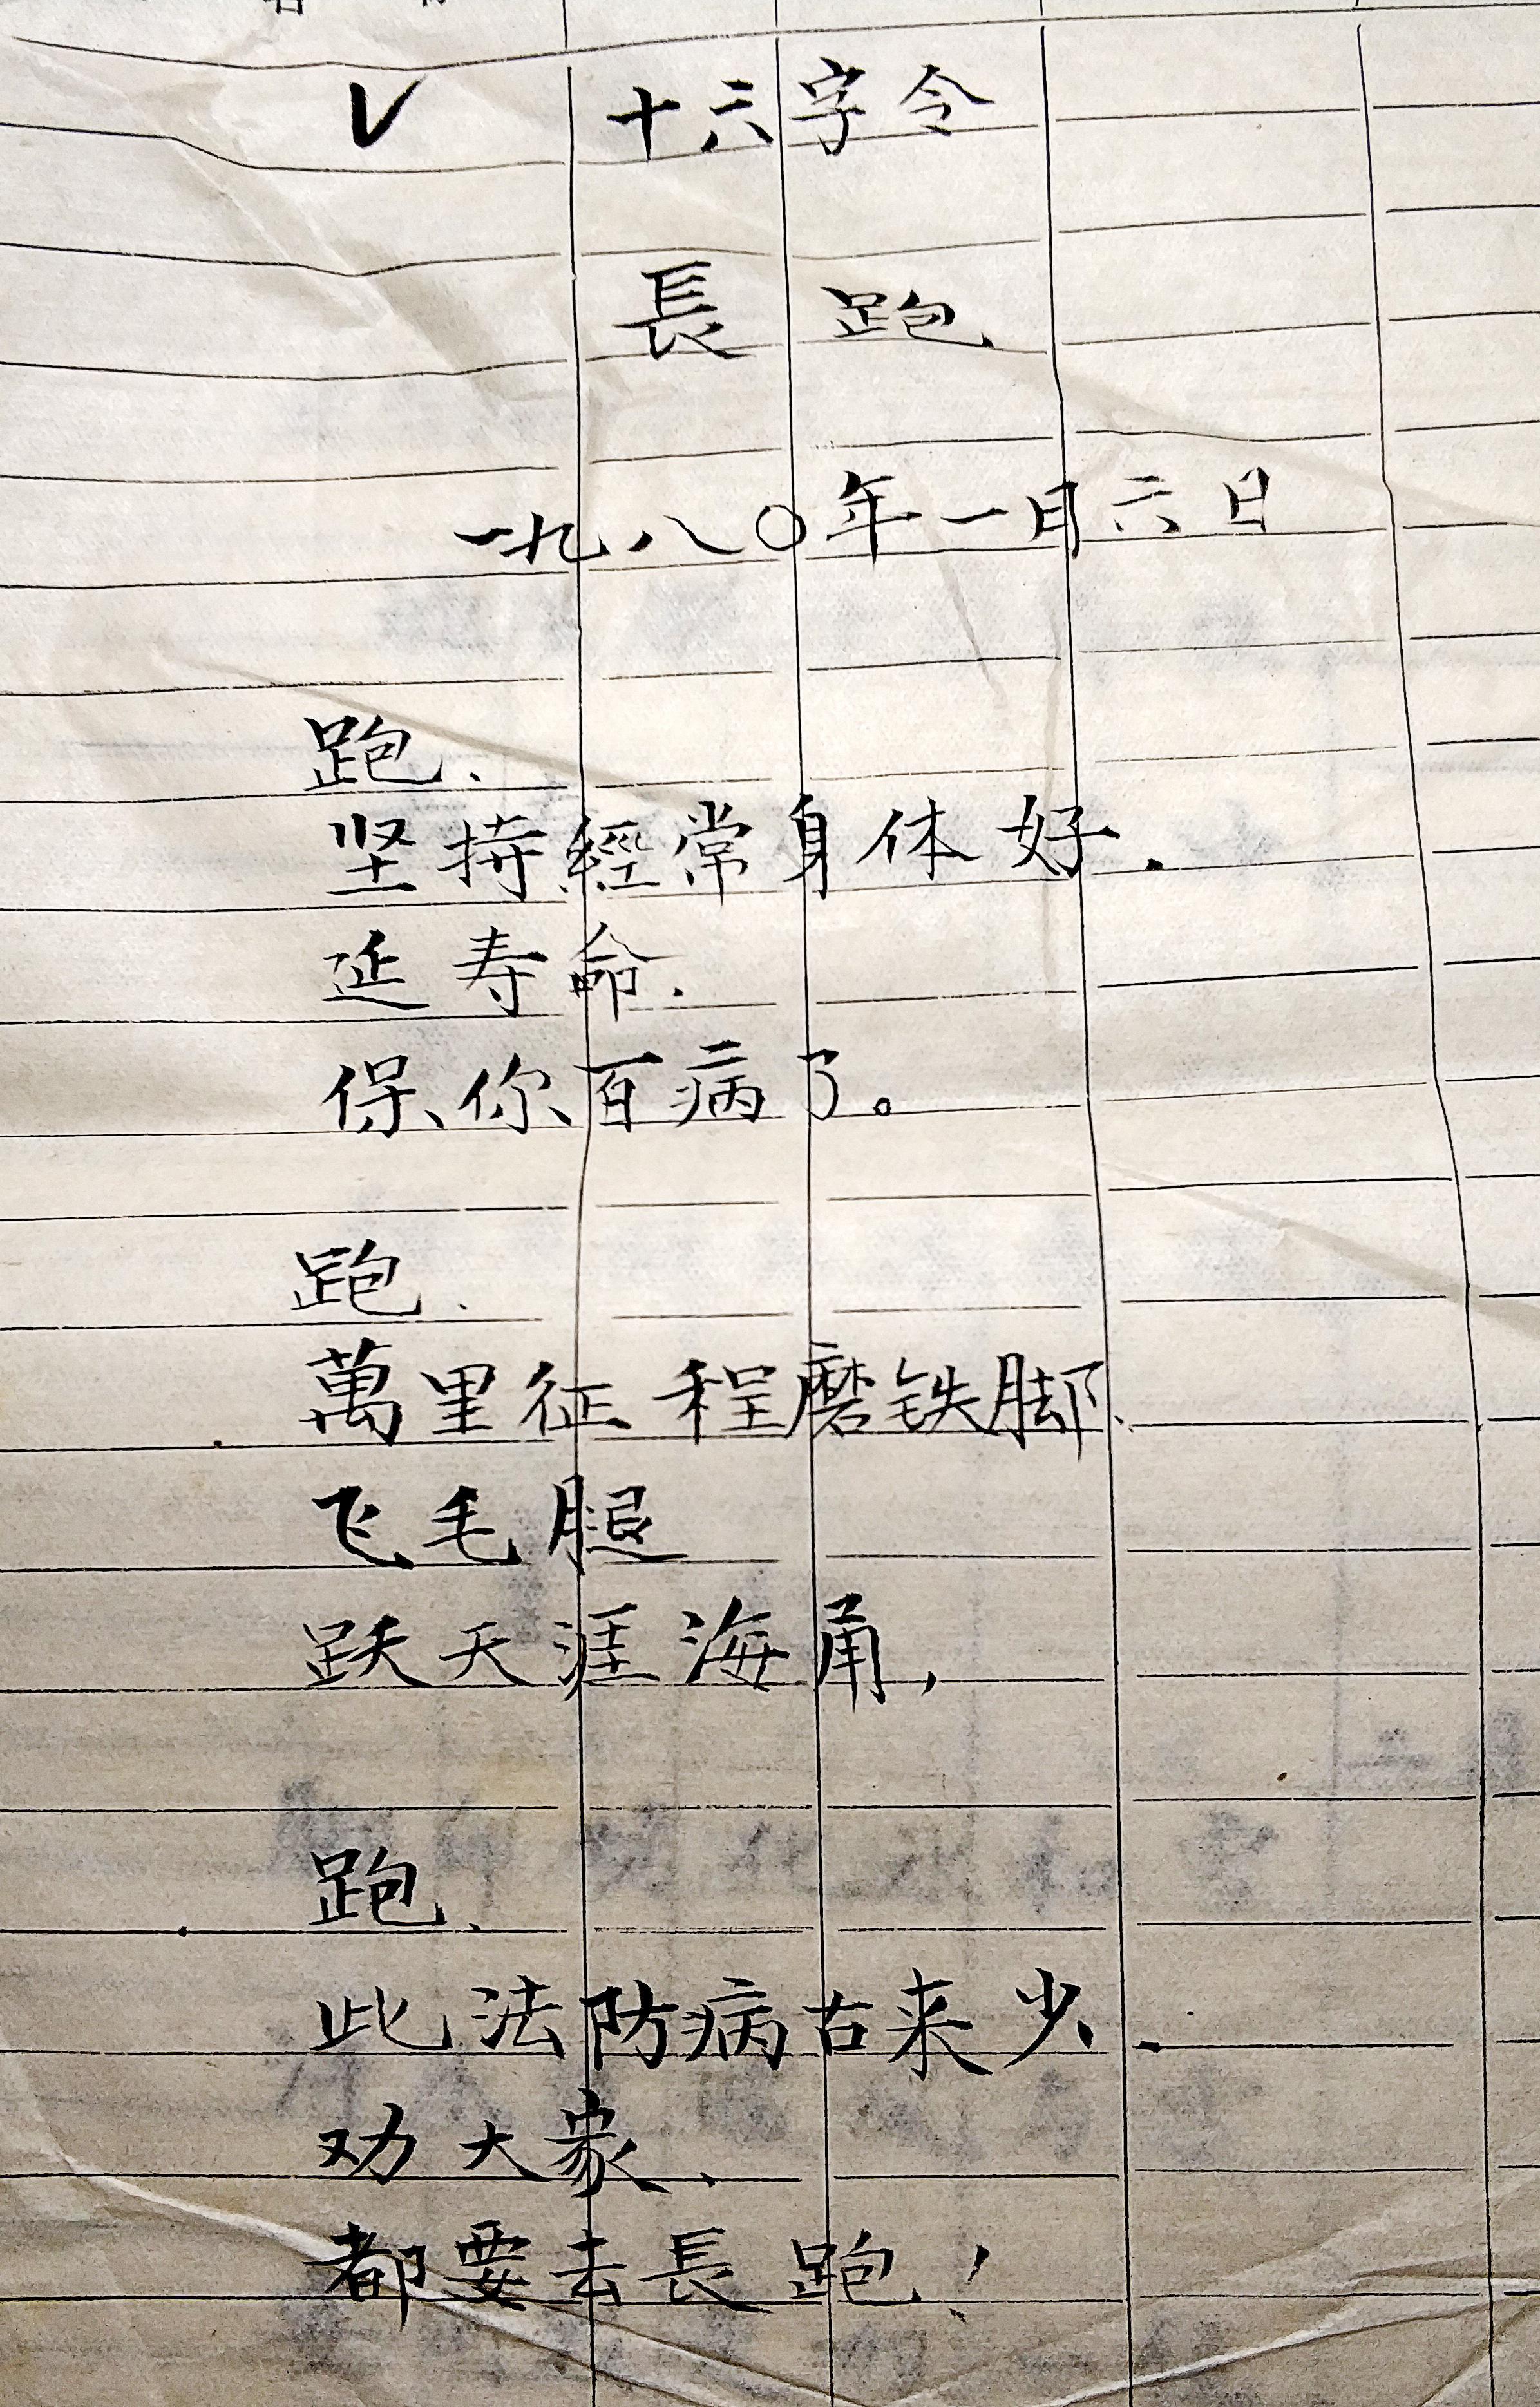 ✓ 十六字令
長跑
一九八〇年一月六日
跑.
坚持經常身体好.
延寿命.
保你百病了。
跑.
萬里征程磨铁脚、
飞毛腿
跃天涯海角,
跑、
此法防病古来少.
劝大家、
都要去長跑!